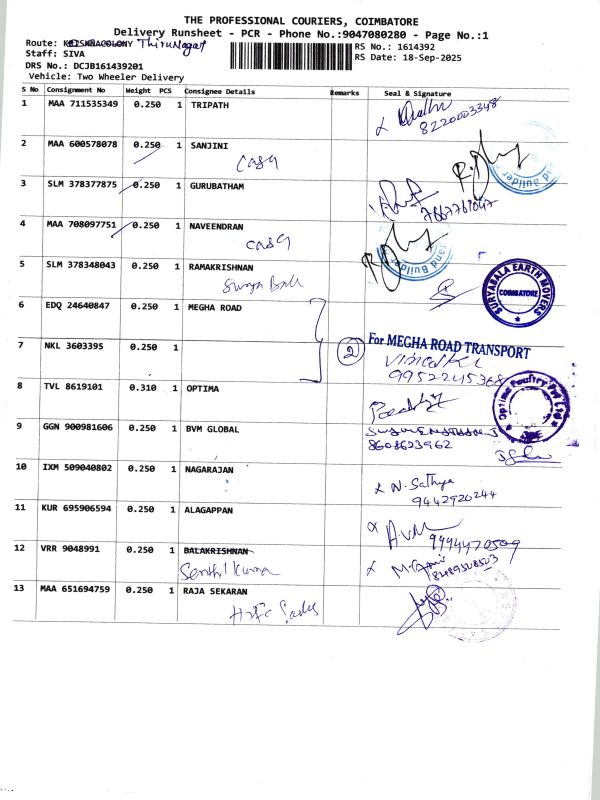 THE PROFESSIONAL COURIERS, COIMBATORE
Delivery Runsheet - PCR - Phone No.:9047080280 - Page No.:1
Route: KRISHNACOLONY ThiruNagar RS No.: 1614392
Staff: SIVA RS Date: 18-Sep-2025
DRS No.: DCJB161439201
Vehicle: Two Wheeler Delivery
S No Consignment No Weight PCS Consignee Details Remarks Seal & Signature
1 MAA 711535349 0.250 1 TRIPATH
8220003348
2 MAA 600578078 0.250 1 SANJINI
3 SLM 378377875 0.250 1 GURUBATHAM
7667761047
4 MAA 708097751 0.250 1 NAVEENDRAN
and Builder
5 SLM 378348043 0.250 1 RAMAKRISHNAN
SURYABALA EARTH MOVERS
COIMBATORE
6 EDQ 24640847 0.250 1 MEGHA ROAD
7 NKL 3603395 0.250 1
2 For MEGHA ROAD TRANSPORT
9952245368
8 TVL 8619101 0.310 1 OPTIMA
Optima Poultry Pvt Ltd
9 GGN 900981606 0.250 1 BVM GLOBAL
8608623962
10 IXM 509040802 0.250 1 NAGARAJAN
N. Sathya
9442920244
11 KUR 695906594 0.250 1 ALAGAPPAN
A.VM
9494470509
12 VRR 9048991 0.250 1 BALAKRISHNAN
Senthil Kumar
8489508503
13 MAA 651694759 0.250 1 RAJA SEKARAN